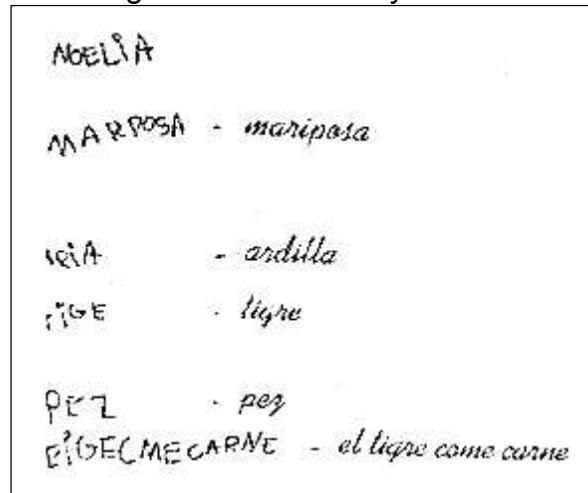 NOELIA
MARPOSA - mariposa
IRIA - ardilla
TIGE - tigre
PEZ - pez
EIGECMECARNE - el tigre come carne